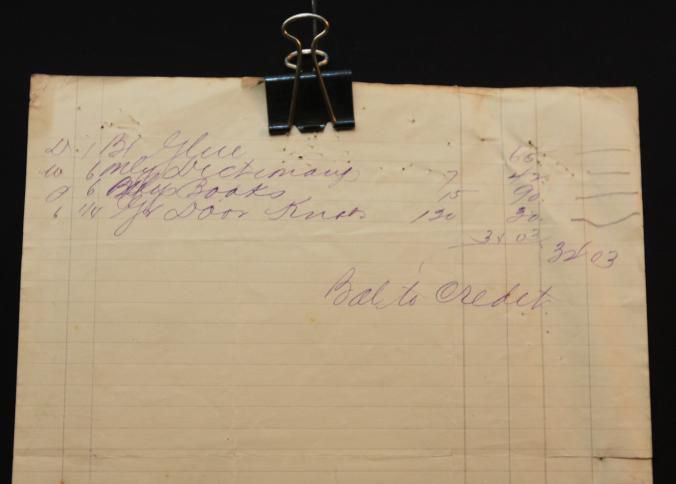 1 Bx Glue 65
10 6 Mly Dictionary 7 42
9 6 Books 15 90
6 1/4 Gr Door Knobs 120 30
03 03
Bal to Credit